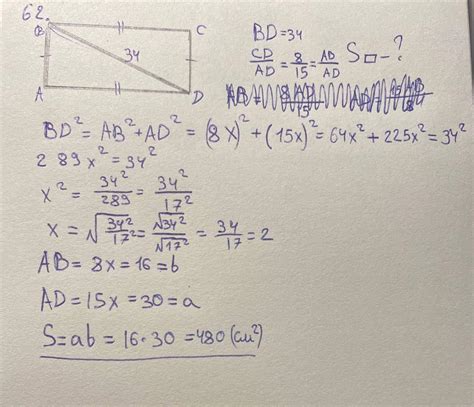 62.
B C
34
A D
BD=34
CD/AD = 8/15 = AD/AD S□-?
BD² = AB² + AD² = (8x)² + (15x)² = 64x² + 225x² = 34²
289x² = 34²
x² = 34²/289 = 34²/17²
x = √(34²/17²) = √34²/√17² = 34/17 = 2
AB = 8x = 16 = b
AD = 15x = 30 = a
S = ab = 16·30 = 480 (см²)